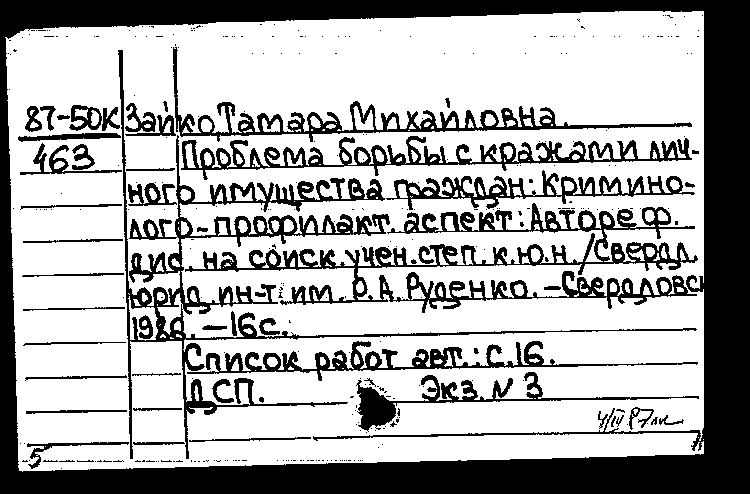 87-50К Зайко, Тамара Михайловна.
463 Проблема борьбы с кражами лич-
ного имущества граждан: Кримино-
лого-профилакт. аспект: Автореф.
дис. на соиск. учен. степ. к.ю.н. /Свердл.
юрид. ин-т. им. Р.А. Руденко. -Свердловск
1986. -16с.
Список работ авт.: С.16.
ДСП. Экз. N 3
5